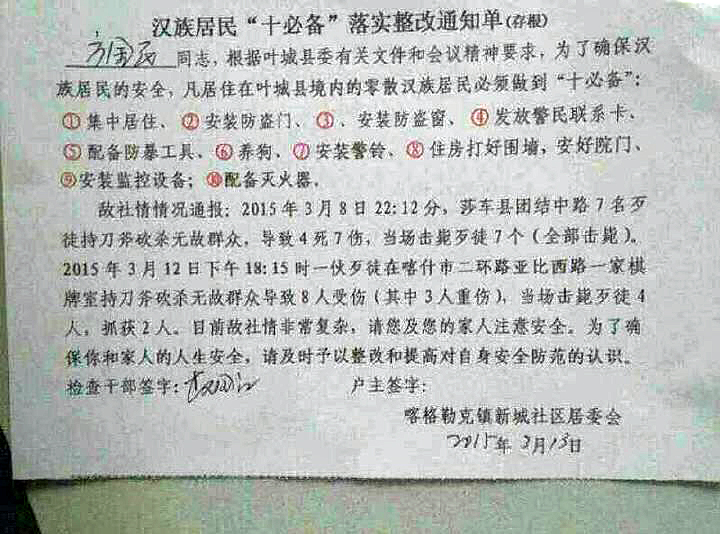 汉族居民“十必备”落实整改通知单(存根)
同志，根据叶城县委有关文件和会议精神要求，为了确保汉
族居民的安全，凡居住在叶城县境内的零散汉族居民必须做到“十必备”：
①集中居住、②安装防盗门、③、安装防盗窗、④发放警民联系卡、
⑤配备防暴工具、⑥养狗、⑦安装警铃、⑧住房打好围墙，安好院门、
⑨安装监控设备；⑩配备灭火器。
敌社情情况通报：2015年3月8日22:12分，莎车县团结中路7名歹
徒持刀斧砍杀无故群众，导致4死7伤，当场击毙歹徒7个（全部击毙）。
2015年3月12日下午18:15时一伙歹徒在喀什市二环路亚比西路一家棋
牌室持刀斧砍杀无故群众导致8人受伤（其中3人重伤），当场击毙歹徒4
人，抓获2人。目前敌社情非常复杂，请您及您的家人注意安全。为了确
保你和家人的人生安全，请及时予以整改和提高对自身安全防范的认识。
检查干部签字： 户主签字：
喀格勒克镇新城社区居委会
2015年3月13日